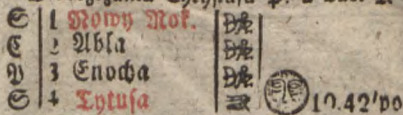 S 1 Nowy Rok.
C 2 Abla
P 3 Enocha
S 4 Tytusa 10.42'po